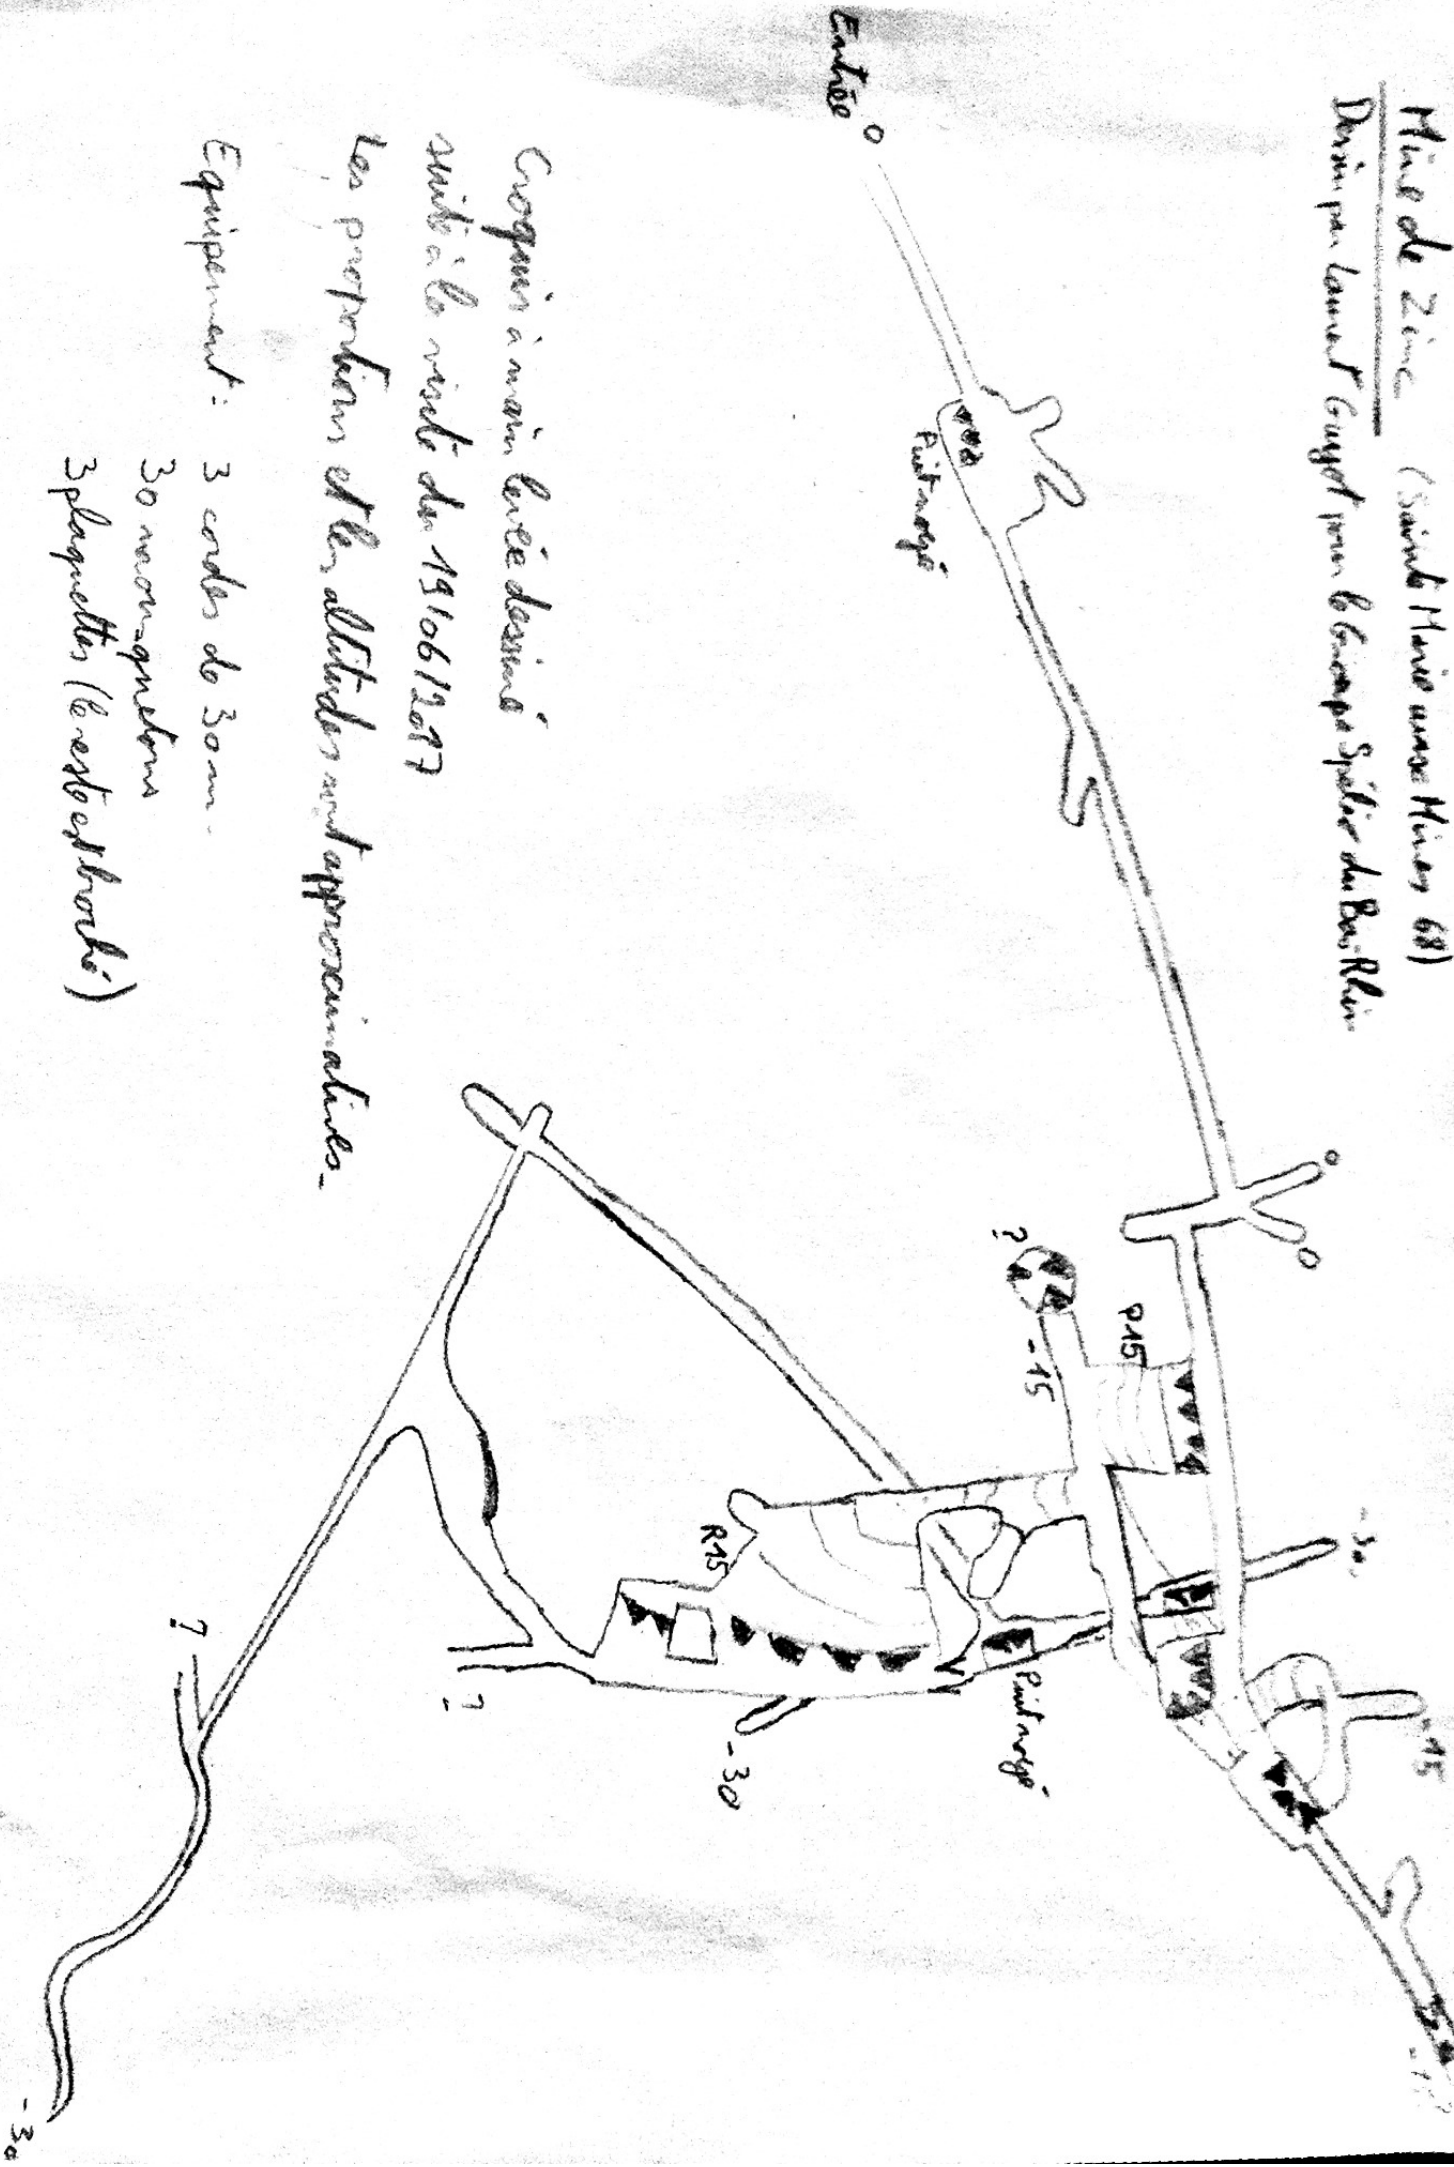 Mine de Zinc (Sainte Marie aux Mines 68)
Dessin par Laurent Guyot pour le Groupe Spéléo du Bas-Rhin
Entrée
Puit noyé
P15
?
-15
-30
-15
R15
Puit noyé
-30
?
?
-30
Croquis à main levée dessiné
suite à la visite du 19/06/2017
Les proportions et les altitudes sont approximatives.
Equipement : 3 cordes de 30m.
30 mousquetons
3 plaquettes (le reste est broché)